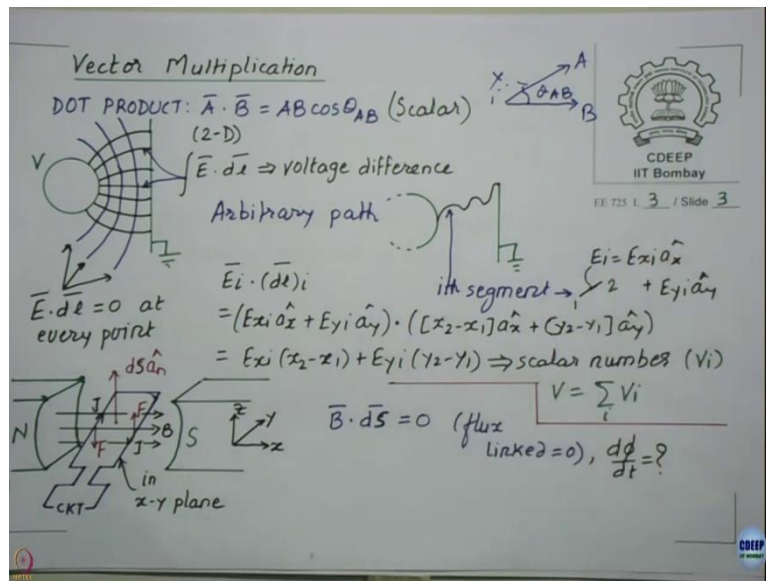 Vector Multiplication
DOT PRODUCT: A̅ · B̅ = AB cos θAB (Scalar)
A
θAB
B
CDEEP
IIT Bombay
EE 725 L 3 / Slide 3
(2-D)
V
∫ E̅ · dl̅ ⇒ voltage difference
Arbitrary path
E̅ · dl̅ = 0 at
every point
E̅i · (dl̅)i
ith segment → 1 2
Ei = Exi âx
+ Eyi ây
= (Exi âx + Eyi ây) · ([x2-x1] âx + (y2-y1] ây)
= Exi (x2-x1) + Eyi (y2-y1) ⇒ scalar number (Vi)
V = Σi Vi
ds ân
N
J
F
F
J
B
S
z
y
x
CKT
in
x-y plane
B̅ · ds̅ = 0 (flux
linked = 0), dϕ/dt = ?
CDEEP
IIT BOMBAY
NPTEL